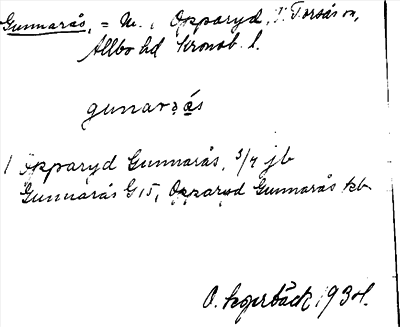 Gunnarås, = N. i Opparyd, i Torsås sn,
Allbo hd Kronob. l.
gunarås
1 Opparyd Gunnarås, 3/4 jb
Gunnarås G 15, Opparyd Gunnarås kb
O. 1934.